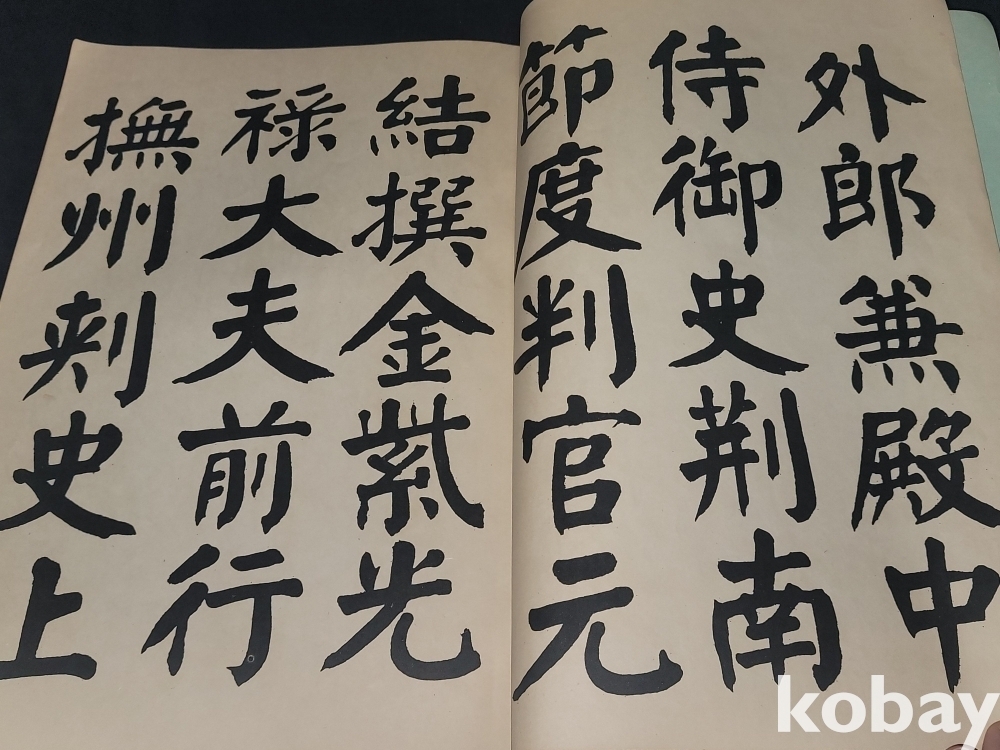 外郎兼殿中
侍御史荆南
節度判官元
結撰金紫光
禄大夫前行
撫州刺史上
kobay